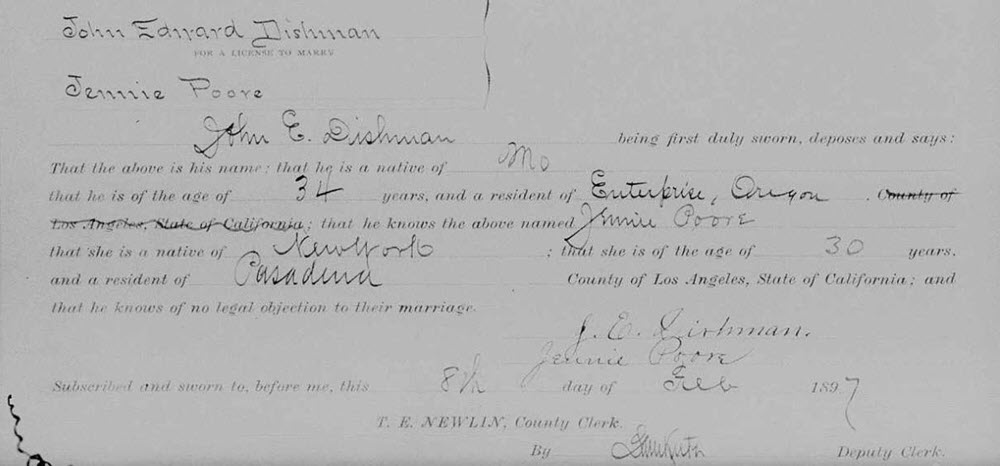 John Edward Dishman
FOR A LICENSE TO MARRY
Jennie Poore
John E. Dishman being first duly sworn, deposes and says:
That the above is his name; that he is a native of Mo
that he is of the age of 34 years, and a resident of Enterprise, Oregon. County of
Los Angeles, State of California; that he knows the above named Jennie Poore
that she is a native of New York; that she is of the age of 30 years,
and a resident of Pasadena County of Los Angeles, State of California; and
that he knows of no legal objection to their marriage.
J. E. Dishman.
Jennie Poore
Subscribed and sworn to, before me, this 8th day of Feb 1897
T. E. NEWLIN, County Clerk.
By Deputy Clerk.